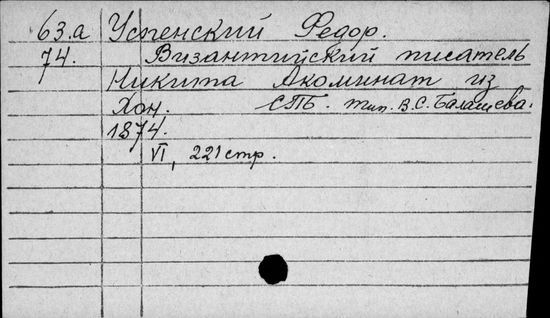 63.а Успенский Федор.
74. Византийский писатель
Никита Акоминат из
Хон. СТБ. тип. В.С. Балашева.
1874.
VI, 221 стр.